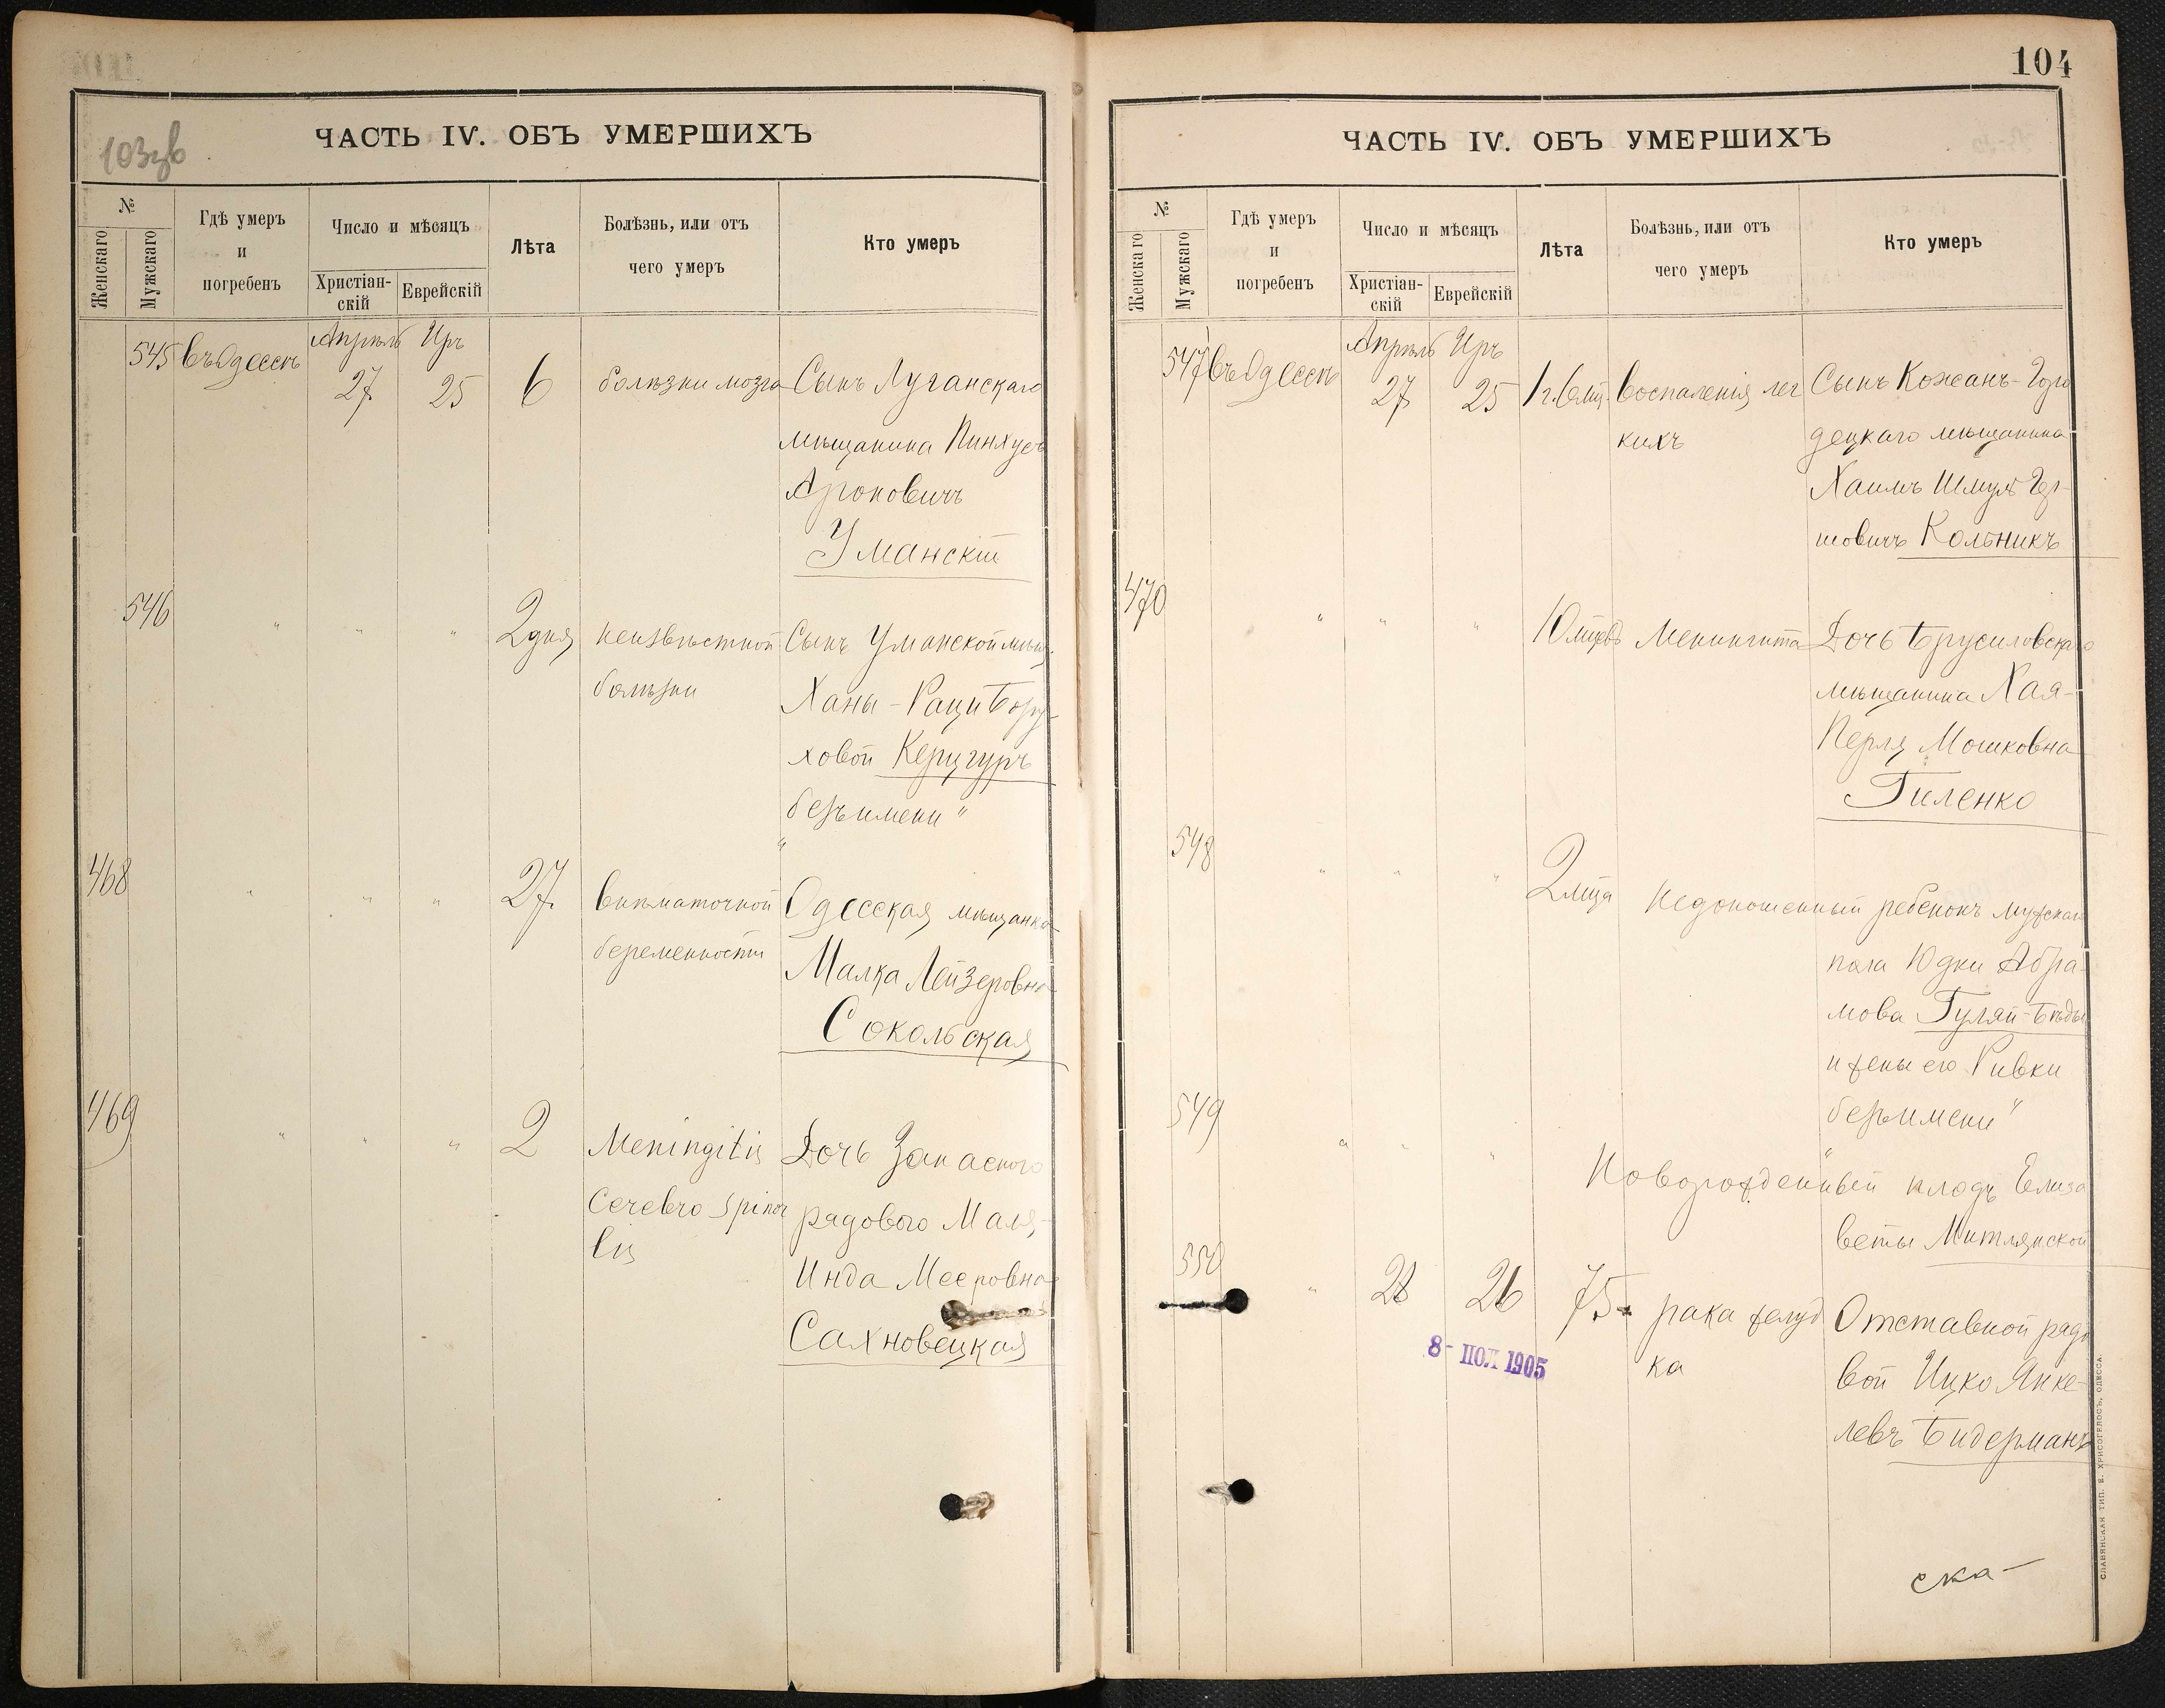 103зв
ЧАСТЬ IV. ОБЪ УМЕРШИХЪ
№
Женскаго
Мужскаго
Гдѣ умеръ
и
погребенъ
Число и мѣсяцъ
Христіан-
скій
Еврейскій
Лѣта
Болѣзнь, или отъ
чего умеръ
Кто умеръ
Апрѣль Иръ
545 въ Одессѣ 27 25 6 болѣзни мозга Сынъ Луганскаго
мѣщанина Пинхусъ
Ароновичъ
Уманскій
546 " " " 2 дня неизвѣстной Сынъ Уманской мѣщ.
болѣзни Ханы-Раци Бору-
ховой Керцгуръ
безъ имени "
468 " " " 27 внѣматочной Одесская мѣщанка
беременности Малка Лейзеровна
Сокольская
469 " " " 2 Meningitis Дочь Запасного
Cerebro spina рядового Маля-
lis Инда Мееровна
Сахновецкая
104
ЧАСТЬ IV. ОБЪ УМЕРШИХЪ
№
Женскаго
Мужскаго
Гдѣ умеръ
и
погребенъ
Число и мѣсяцъ
Христіан-
скій
Еврейскій
Лѣта
Болѣзнь, или отъ
чего умеръ
Кто умеръ
Апрѣль Иръ
547 въ Одессѣ 27 25 1г. 6 мц. воспаленія лег Сынъ Кожеанъ-Горо
кихъ децкаго мѣщанина
Хаимъ Шмуль Гер-
шовичъ Кольникъ
470 " " " 10 мцевъ Менингита Дочь Брусиловскаго
мѣщанина Хая-
Перля Мошковна
Гиленко
548 " " " 2 мца Недоношенный ребенокъ мужскаго
пола Юдки Абра-
мова Гуляй-Бѣды
и жены его Ривки
безъ имени "
549 " " " Новорожденный плодъ Елиза
веты Митлянской
550 " 28 26 75 рака желуд Отставной рядо
ка вой Ицко Янке-
левъ Бидерманъ
8- ІЮЛ 1905
ска-
СЛАВЯНСКАЯ ТИП. Е. ХРИСОГЕЛОСЪ, ОДЕССА.